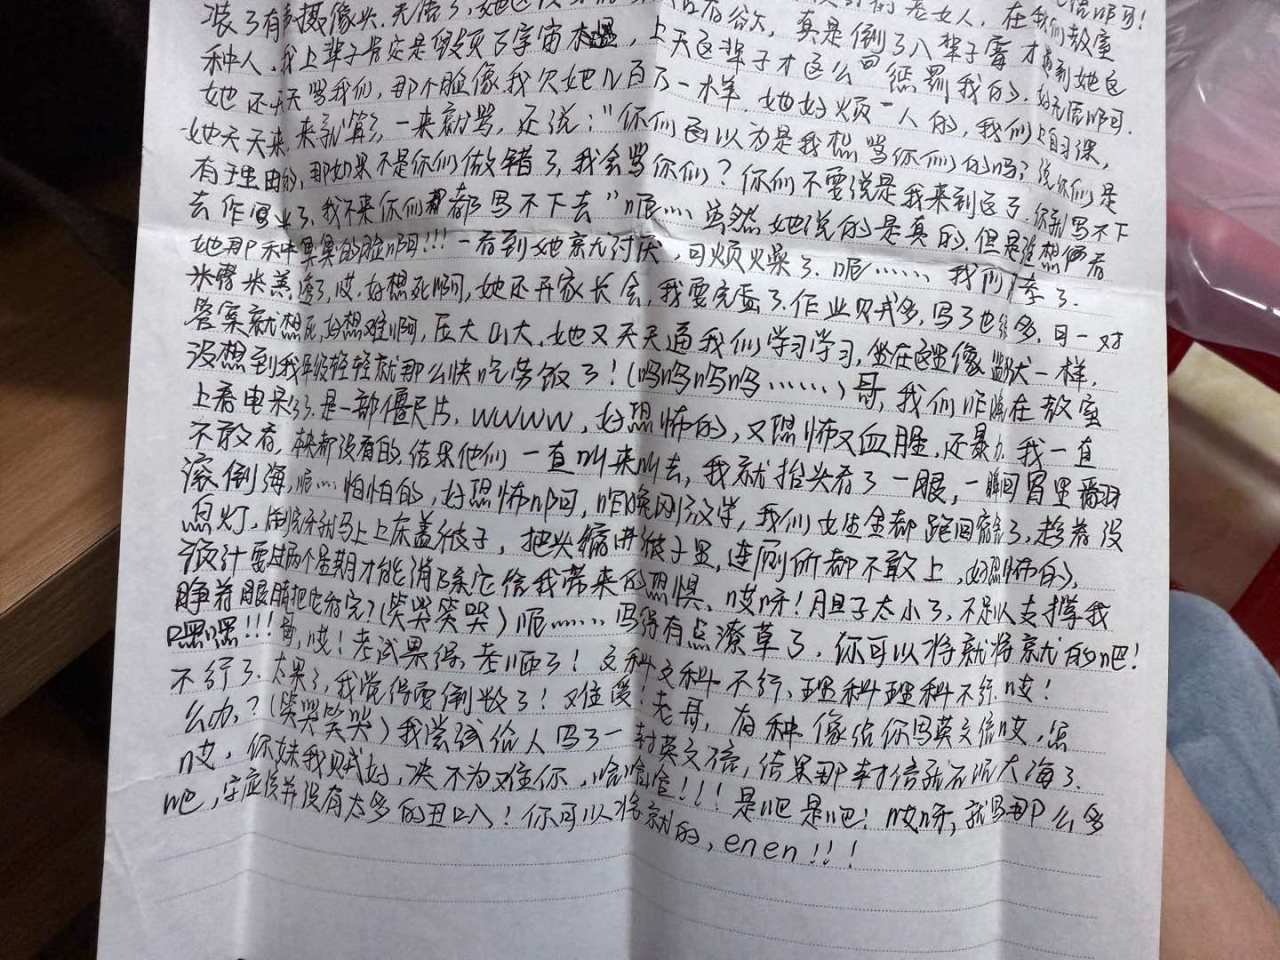 装了有摄像头,无语了,她
的老女人,在我们教室
种人,我上辈子肯定是毁灭了宇宙,上天这辈子才这么回惩罚我的,好无语啊啊.
她还天天骂我们,那个脸像我欠她几百万一样,她好烦一人的,我们上自习课,
她天天来,来就算了,一来就骂,还说:"你们因以为是我想骂你们的吗?说你们是
有理由的,那如果不是你们做错了,我会骂你们?你们不要说是我来到这了,你别写不下
去作业了,我不来你们都写不下去"呃……虽然她说的是真的,但是谁想便看
她那种臭臭的脸啊啊!!!一看到她就讨厌,可烦燥了.呃……,我们
了,哎,好想死啊啊,她还开家长会,我要完蛋了.作业贼多,写了也很多,一对
答案就想死,好想难啊,压大山大,她又天天逼我们学习学习,坐在这里像监狱一样,
没想到我年级轻轻就那么快吃劳饭了!(呜呜呜呜……)哥,我们昨晚在教室
上看电影了,是一部僵尸片,wwww,好恐怖的,又恐怖又血腥,还暴力,我一直
不敢看,本来都没看的,结果他们一直叫来叫去,我就抬头看了一眼,一瞬间胃里翻
滚倒海,呃……怕怕的,好恐怖啊啊,昨晚刚放学,我们女生全都跑回宿舍了,趁着没
息灯,刷完牙就马上上床盖被子,把头缩进被子里,连厕所都不敢上,好恐怖的,
预计要过两个星期才能消除它给我带来的恐惧,哎呀!胆子太小了,不足以支撑我
睁着眼睛把它看完?(笑哭笑哭)呃……写得有点潦草了,你可以将就将就的吧!
嘿嘿!!!哎!考试果得,考砸了!文科文科不行,理科理科不行.哎!
不行了.太果了,我觉得要倒数了!难受!老哥,有种像给你写英文信哎,怎
么办,?(笑哭笑哭)我尝试给人写了一封英文信,结果那封信就石沉大海了.
哎,你妹我贼好,决不为难你,哈哈哈!!!是吧是吧!哎呀,就写那么多
吧,字应该并没有太多的丑八!你可以将就的,enen!!!